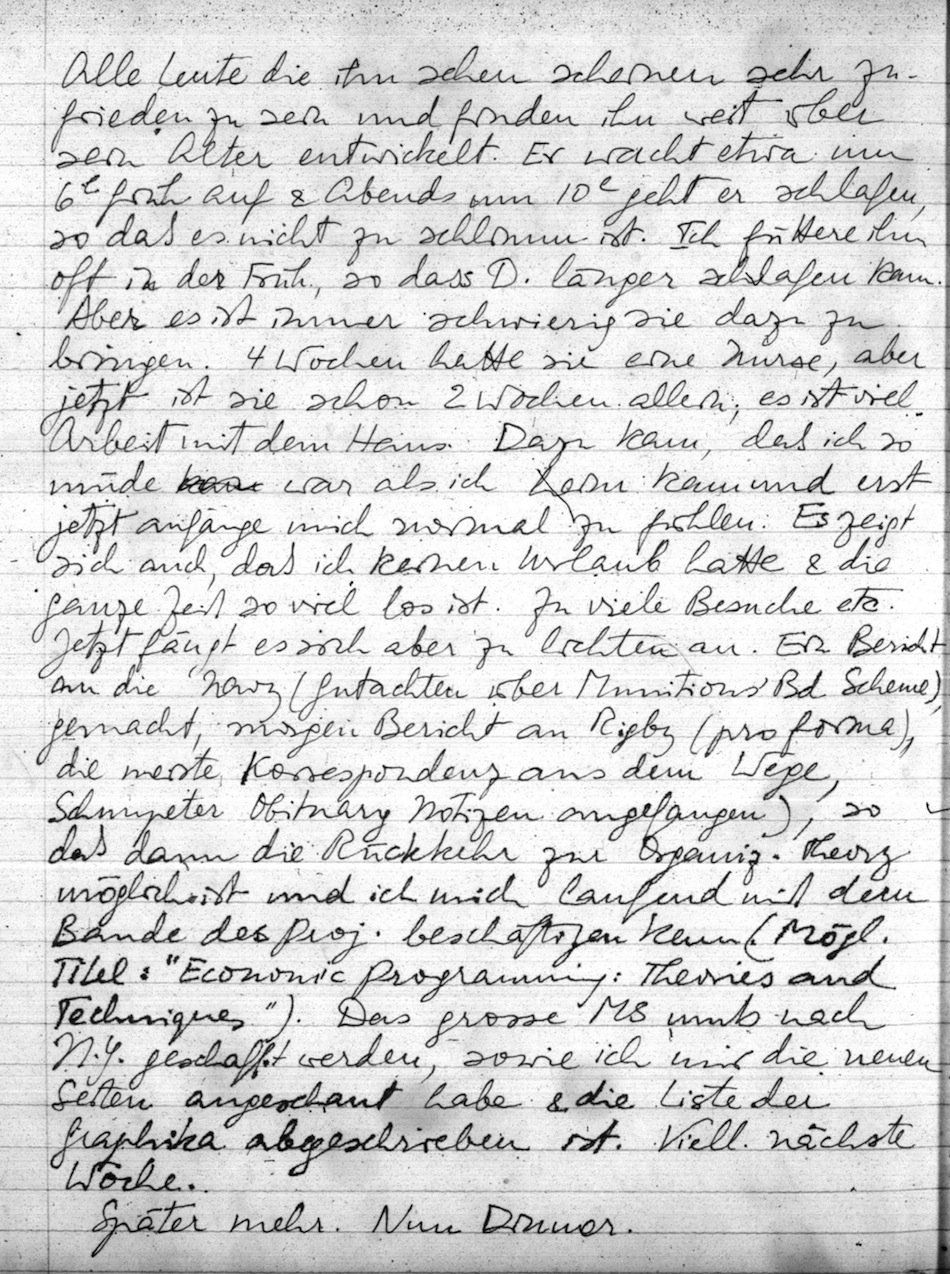 Alle Leute die ihn sehen scheinen sehr zu-
frieden zu sein und finden ihn weit über
sein Alter entwickelt. Er wacht etwa um
6h früh auf & Abends um 10h geht er schlafen,
so das es nicht zu schlimm ist. Ich füttere ihn
oft in der Früh, so dass D. länger schlafen kann.
Aber es ist immer schwierig sie dazu zu
bringen. 4 Wochen hatte sie eine Nurse, aber
jetzt ist sie schon 2 Wochen allein; es ist viel
Arbeit mit dem Haus. Dazu kam, das ich so
müde kam war als ich heim kam und erst
jetzt anfange mich normal zu fühlen. Es zeigt
sich auch, das ich keinen Urlaub hatte & die
ganze Zeit so viel los ist. Zu viele Besuche etc.
Jetzt fängt es sich aber zu lichten an. Ein Bericht
an die Navy (Gutachten über Munitions Bd Scheme),
gemacht, morgen Bericht an Rigby (pro forma),
die meiste Korrespondenz aus dem Wege,
Schumpeter Obituary Notizen angefangen), so
das dann die Rückkehr zur Organiz. Theory
möglich ist und ich mich laufend mit dem
Bande des Proj. beschäftigen kann (Mögl.
Titel: "Economic Programming: Theories and
Techniques"). Das grosse MS muss nach
N.Y. geschafft werden, sowie ich mir die neuen
Seiten angeschaut habe & die Liste der
Graphika abgeschrieben ist. Viell. nächste
Woche.
Später mehr. Nun Dinner.